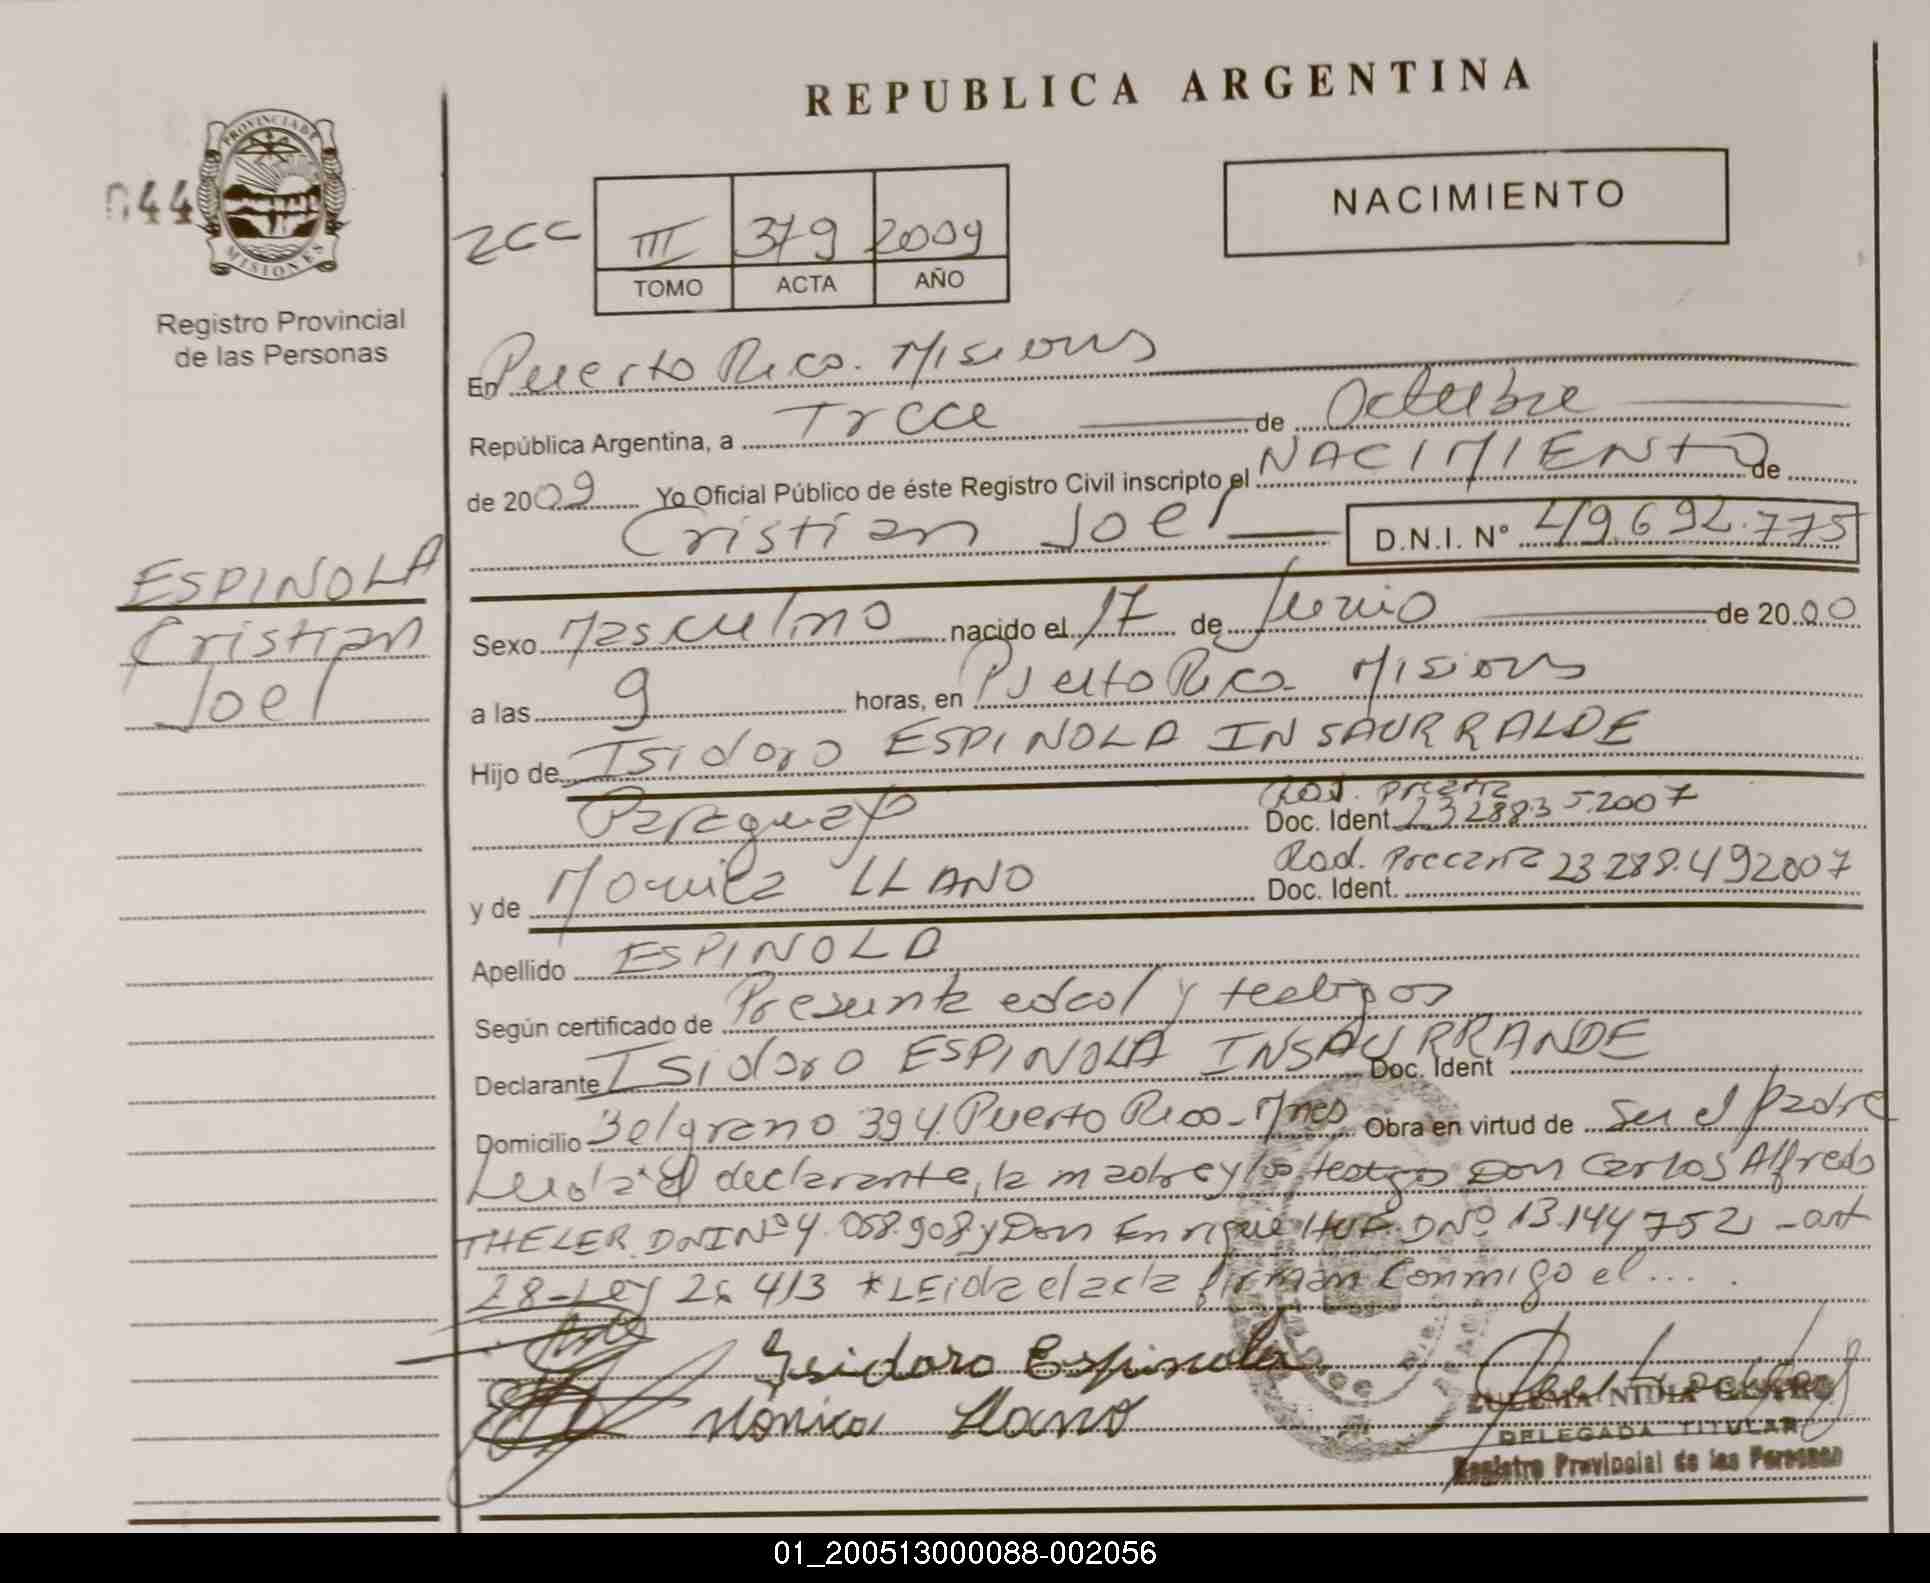 REPUBLICA ARGENTINA
PROVINCIA DE
MISIONES
044
Registro Provincial
de las Personas
NACIMIENTO
III 379 2009
TOMO ACTA AÑO
En Puerto Rico. Misiones
República Argentina, a Trece de Octubre
de 2009 Yo Oficial Público de éste Registro Civil inscripto el NACIMIENTO de
Cristian Joel D.N.I. Nº 49.692.775
ESPINOLA
Cristian
Joel
Sexo Masculino nacido el 17 de Junio de 2000
a las 9 horas, en Puerto Rico. Misiones
Hijo de Isidoro ESPINOLA INSAURRALDE
Paraguayo Rad. Precaria Doc. Ident. 232883 5.2007
y de Monica LLANO Rad. Precaria Doc. Ident. 23.288.492007
Apellido ESPINOLA
Según certificado de Presunta edad y testigos
Declarante Isidoro ESPINOLA INSAURRANDE Doc. Ident
Domicilio Belgrano 394. Puerto Rico - Mnes Obra en virtud de ser el padre
declarante, la madre y los testigos Don Carlos Alfredo
THELER. DNI Nº 4.058.908 y Don Enrique DNº 13.144752 - art
28 - Ley 26 413 * LEida el acta firman Conmigo el ....
Isidoro Espinola
Mónica Llano
ZULEMA NIDIA CASTRO
DELEGADA TITULAR
Registro Provincial de las Personas
01_200513000088-002056